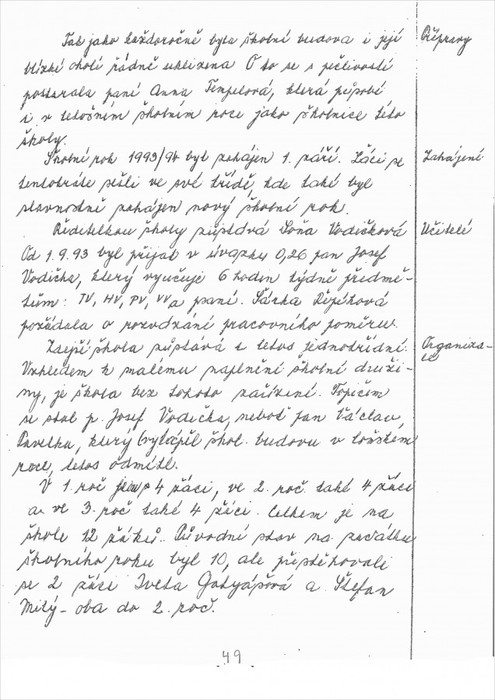 Tak jako každoročně byla školní budova i její
blízké okolí řádně uklizena. O to se s pečlivostí
postarala paní Anna Tempelová, která působí
i v letošním školním roce jako školnice této
školy.
Školní rok 1993/94 byl zahájen 1. září. Žáci se
tentokráte sešli ve své třídě, kde také byl
slavnostně zahájen nový školní rok.
Ředitelkou školy zůstává Soňa Vodičková
Od 1.9.93 byl přijat v úvazku 0,26 pan Josef
Vodička, který vyučuje 6 hodin týdně předmě-
tům: TV, HV, PV, VV a paní. Šárka Řípéková
požádala o rozvázání pracovního poměru.
Zdejší škola zůstává i letos jednotřídní.
Vzhledem k malému naplnění školní druži-
ny, je škola bez tohoto zařízení. Topičem
se stal p. Josef Vodička, neboť pan Václav
Pavelka, který vytápěl škol. budovu v loňském
roce, letos odmítl.
V 1. roč jsou 4 žáci, ve 2. roč. také 4 žáci
a ve 3. roč také 4 žáci. Celkem je na
škole 12 žáků. Původní stav na začátku
školního roku byl 10, ale přistěhovali
se 2 žáci Iveta a Štefan
Milý - oba do 2. roč.
Přípravy
Zahájení
Učitelé
Organiza-
ce
49